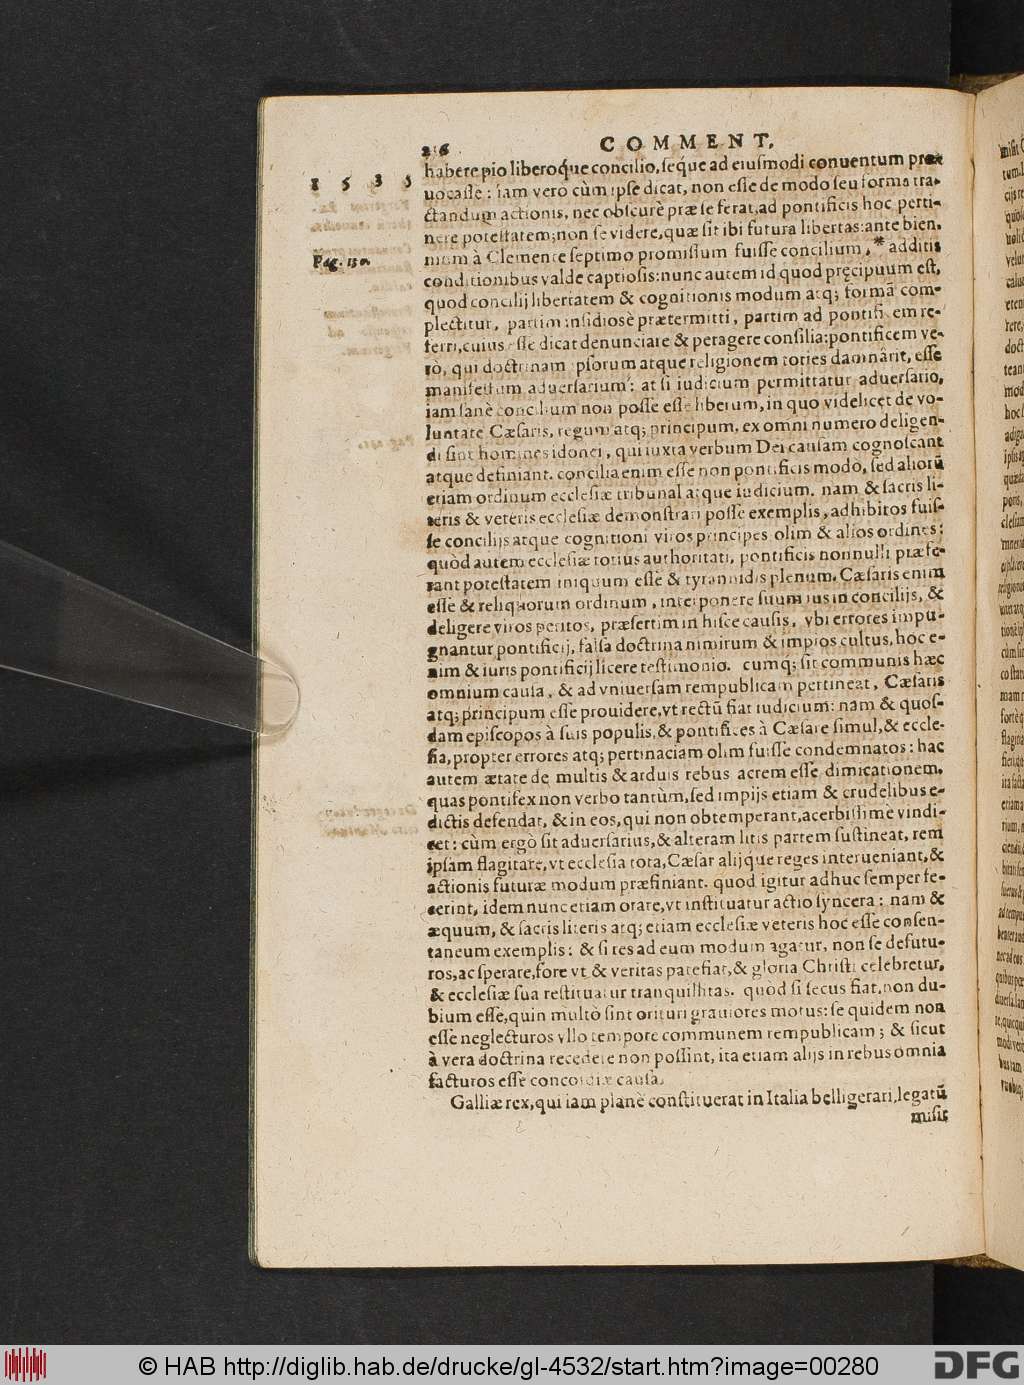 COMMENT.
1535
habere pio liberoq́ue concilio, seque ad eiusmodi conuentum præ-
uocasse: iam verò cùm ipse dicat, non esse de modo seu forma tra-
ctandum actionis, nec obscurè præ se ferat, ad pontificis hoc perti-
nere potestatem; non se videre, quæ sit ibi futura libertas: ante bien-
nium à Clemente septimo promissum fuisse concilium, * additis
Pag. 130.
conditionibus valde captiosis: nunc autem id quod pręcipuum est,
quod concilij libertatem & cognitionis modum atq; formā com-
plectitur, partim insidiosè prætermitti, partim ad pontificem re-
ferri, cuius esse dicat denunciare & peragere consilia: pontificem ve-
rò, qui doctrinam ipsorum atque religionem toties damnârit, esse
manifestum aduersarium: at si iudicium permittatur aduersario,
iam sanè concilium non posse esse liberum, in quo videlicet de vo-
luntate Cæsaris, regum atq; principum, ex omni numero deligen-
di sint homines idonei, qui iuxta verbum Dei causam cognoscant
atque definiant. concilia enim esse non pontificis modò, sed aliorū
etiam ordinum ecclesiæ tribunal atque iudicium. nam & sacris li-
teris & veteris ecclesiæ demonstrari posse exemplis, adhibitos fuis-
se concilijs atque cognitioni viros principes olim & alios ordines:
quòd autem ecclesiæ totius authoritati, pontificis nonnulli præfe-
rant potestatem iniquum esse & tyrannidis plenum. Cæsaris enim
esse & reliquorum ordinum, interponere suum ius in concilijs, &
deligere viros peritos, præsertim in hisce causis, vbi errores impu-
gnantur pontificij, falsa doctrina nimirum & impios cultus, hoc e-
nim & iuris pontificij licere testimonio. cumq; sit communis hæc
omnium causa, & ad vniuersam rempublicam pertineat, Cæsaris
atq; principum esse prouidere, vt rectū fiat iudicium: nam & quos-
dam episcopos à suis populis, & pontifices à Cæsare simul, & eccle-
sia, propter errores atq; pertinaciam olim fuisse condemnatos: hac
autem ætate de multis & arduis rebus acrem esse dimicationem,
quas pontifex non verbo tantùm, sed impijs etiam & crudelibus e-
dictis defendat, & in eos, qui non obtemperant, acerbissimè vindi-
cet: cùm ergò sit aduersarius, & alteram litis partem sustineat, rem
ipsam flagitare, vt ecclesia tota, Cæsar alijq́ue reges interueniant, &
actionis futuræ modum præfiniant. quod igitur adhuc semper fe-
cerint, idem nunc etiam orare, vt instituatur actio syncera: nam &
æquum, & sacris literis atq; etiam ecclesiæ veteris hoc esse consen-
taneum exemplis: & si res ad eum modum agatur, non se defutu-
ros, ac sperare, fore vt & veritas patefiat, & gloria Christi celebretur,
& ecclesiæ sua restituatur tranquillitas. quòd si secus fiat, non du-
bium esse, quin multò sint orituri grauiores motus: se quidem non
esse neglecturos vllo tempore communem rempublicam; & sicut
à vera doctrina recedere non possint, ita etiam alijs in rebus omnia
facturos esse concordiæ causa.
Galliæ rex, qui iam planè constituerat in Italia belligerari, legatū
misit
© HAB http://diglib.hab.de/drucke/gl-4532/start.htm?image=00280
DFG